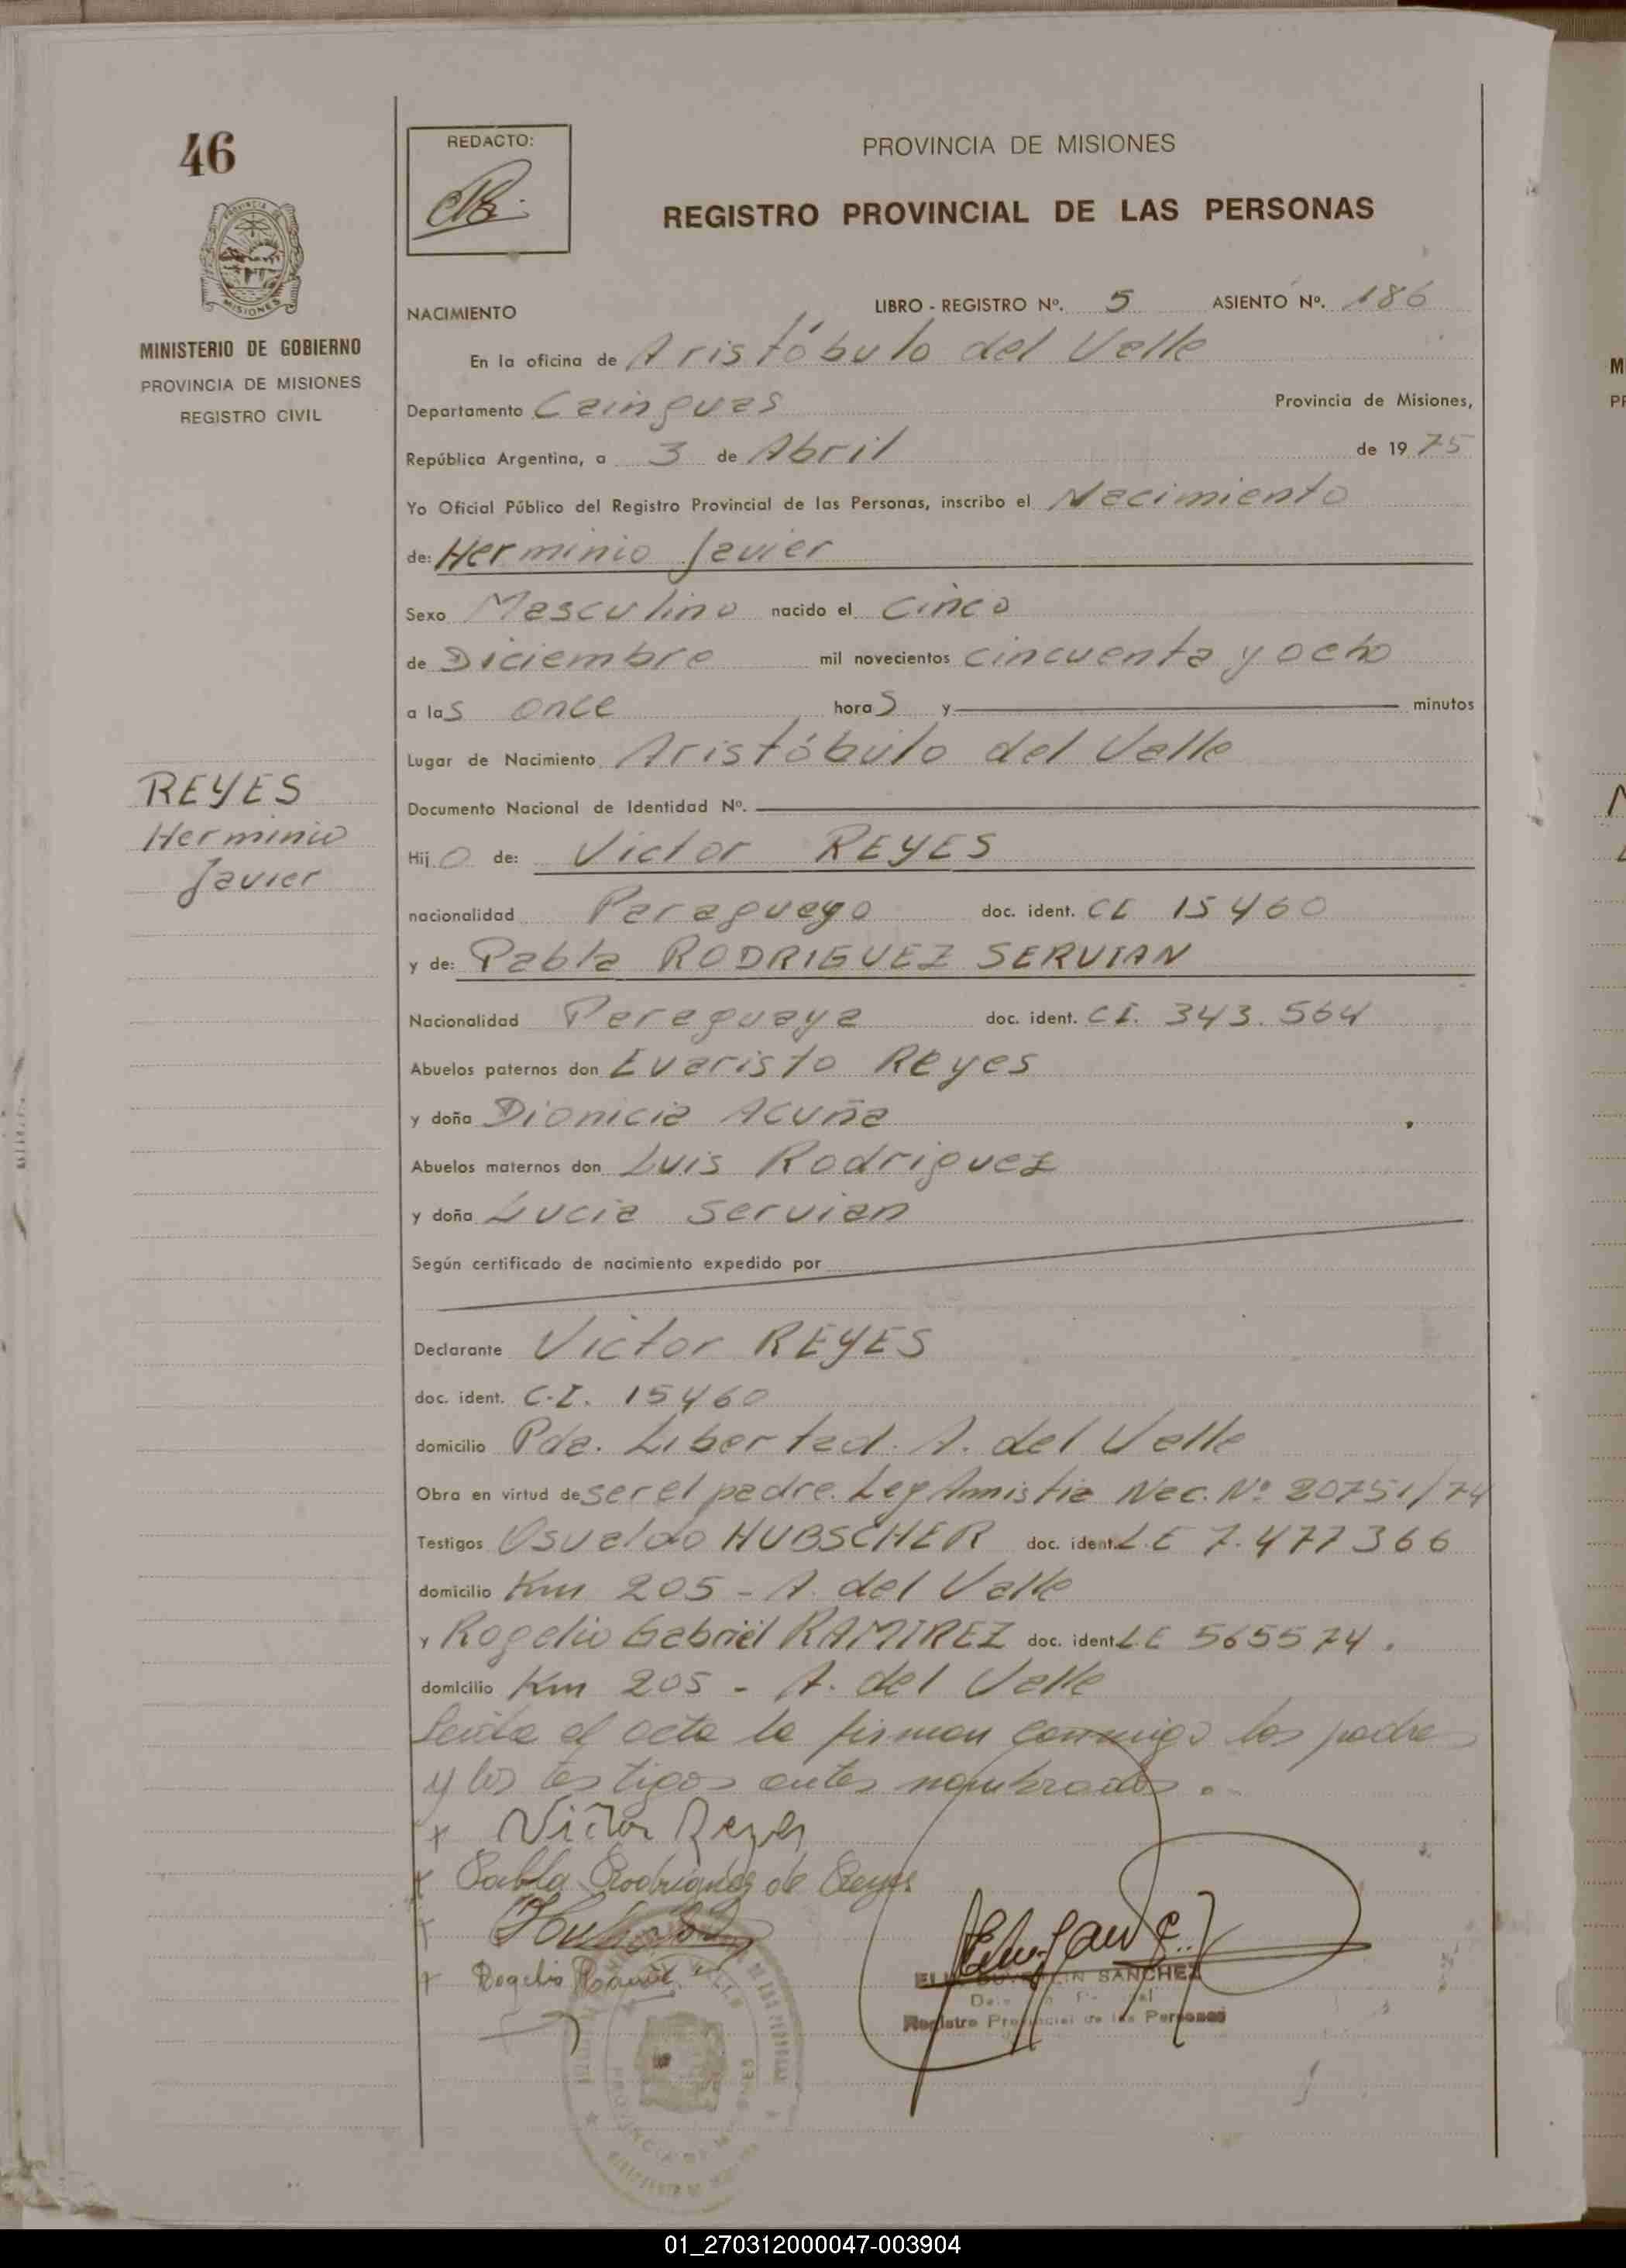 46
REDACTO:
PROVINCIA DE MISIONES
REGISTRO PROVINCIAL DE LAS PERSONAS
MISIONES
MINISTERIO DE GOBIERNO
PROVINCIA DE MISIONES
REGISTRO CIVIL
NACIMIENTO LIBRO - REGISTRO Nº. 5 ASIENTO Nº. 186
En la oficina de Aristóbulo del Valle
Departamento Cainguas Provincia de Misiones,
República Argentina, a 3 de Abril de 1975
Yo Oficial Público del Registro Provincial de las Personas, inscribo el Nacimiento
de: Herminio Javier
Sexo Masculino nacido el cinco
de Diciembre mil novecientos cincuenta y ocho
a las once horas y minutos
Lugar de Nacimiento Aristóbulo del Valle
REYES
Herminio
Javier
Documento Nacional de Identidad Nº.
Hijo de: Victor REYES
nacionalidad Paraguayo doc. ident. CI 15460
y de: Pabla RODRIGUEZ SERVIAN
Nacionalidad Paraguaya doc. ident. CI. 343.564
Abuelos paternos don Evaristo Reyes
y doña Dionicia Acuña
Abuelos maternos don Luis Rodriguez
y doña Lucia Servian
Según certificado de nacimiento expedido por
Declarante Victor REYES
doc. ident. C.I. 15460
domicilio Pda. Libertad. A. del Valle
Obra en virtud de ser el padre. Ley Amistia Nac. Nº 20751/74
Testigos Osvaldo HUBSCHER doc. ident. L.E 7.477366
domicilio Km 205 - A. del Valle
y Rogelio Gabriel RAMIREZ doc. ident. L.E 565574.
domicilio Km 205 - A. del Valle
Leida el acta la firman conmigo los padres
y los testigos antes nombrados.
x Victor Reyes
x Pabla Rodriguez de Reyes
Rogelio Ramirez
SANCHEZ
Registro Provincial de las Personas
01_270312000047-003904